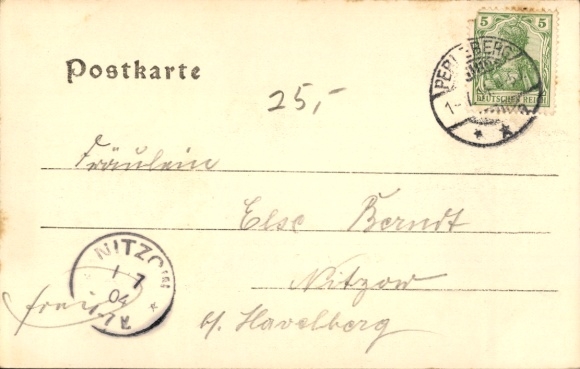 5 5
DEUTSCHES REICH
Postkarte
25,-
Fräulein
Else Berndt
Nitzow
b/. Havelberg
NITZOW
1 7
04
frei